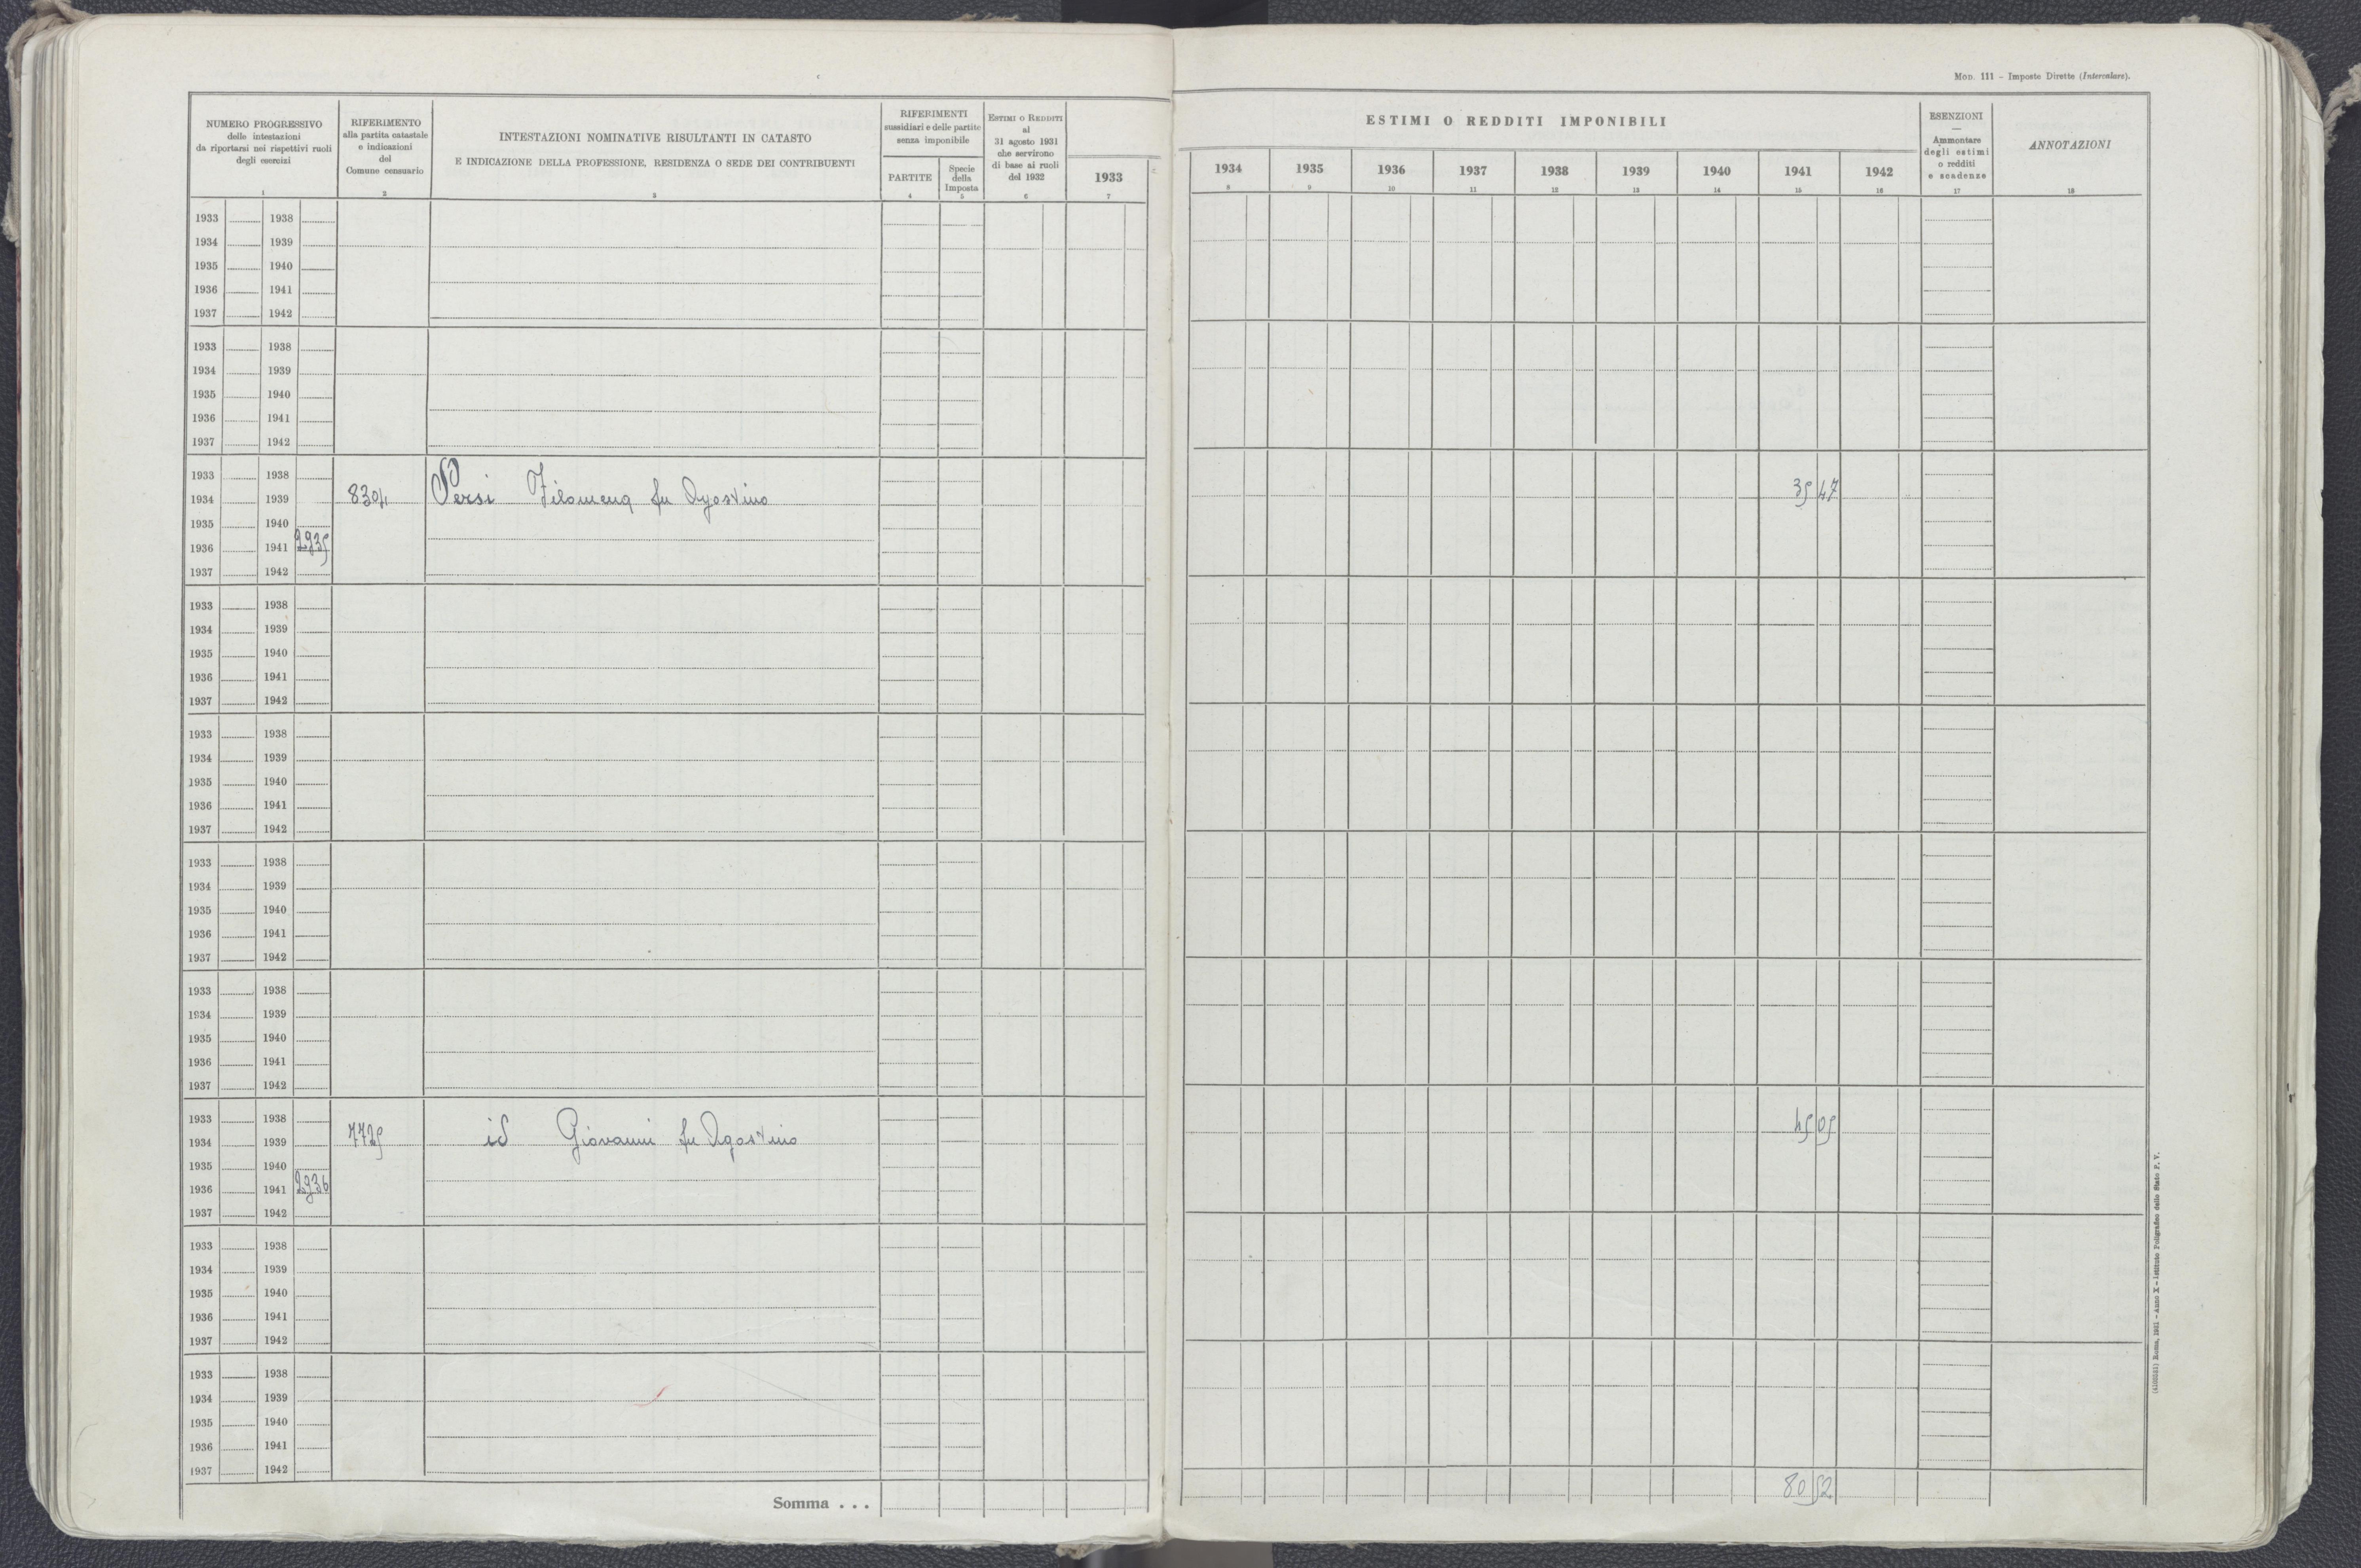 Mod. 111 – Imposte Dirette (Intercalare).
NUMERO PROGRESSIVO
delle intestazioni
da riportarsi nei rispettivi ruoli
degli esercizi
1
RIFERIMENTO
alla partita catastale
e indicazioni
del
Comune censuario
2
INTESTAZIONI NOMINATIVE RISULTANTI IN CATASTO
E INDICAZIONE DELLA PROFESSIONE, RESIDENZA O SEDE DEI CONTRIBUENTI
3
RIFERIMENTI
sussidiari e delle partite
senza imponibile
PARTITE
4
Specie
della
Imposta
5
Estimi o Redditi
al
31 agosto 1931
che servirono
di base ai ruoli
del 1932
6
1933
7
ESTIMI O REDDITI IMPONIBILI
1934 1935 1936 1937 1938 1939 1940 1941 1942
8 9 10 11 12 13 14 15 16
ESENZIONI
—
Ammontare
degli estimi
o redditi
e scadenze
17
ANNOTAZIONI
18
1933 1938
1934 1939
1935 1940
1936 1941
1937 1942
1933 1938
1934 1939
1935 1940
1936 1941
1937 1942
1933 1938
1934 1939 8304 Persi Filomena fu Agostino 35 47
1935 1940
1936 1941 2935
1937 1942
1933 1938
1934 1939
1935 1940
1936 1941
1937 1942
1933 1938
1934 1939
1935 1940
1936 1941
1937 1942
1933 1938
1934 1939
1935 1940
1936 1941
1937 1942
1933 1938
1934 1939
1935 1940
1936 1941
1937 1942
1933 1938
1934 1939 7725 id Giovanni fu Agostino 45 05
1935 1940
1936 1941 2936
1937 1942
1933 1938
1934 1939
1935 1940
1936 1941
1937 1942
1933 1938
1934 1939
1935 1940
1936 1941
1937 1942
Somma . . . 80 52
(4100551) Roma, 1931 – Anno X – Istituto Poligrafico dello Stato P. V.